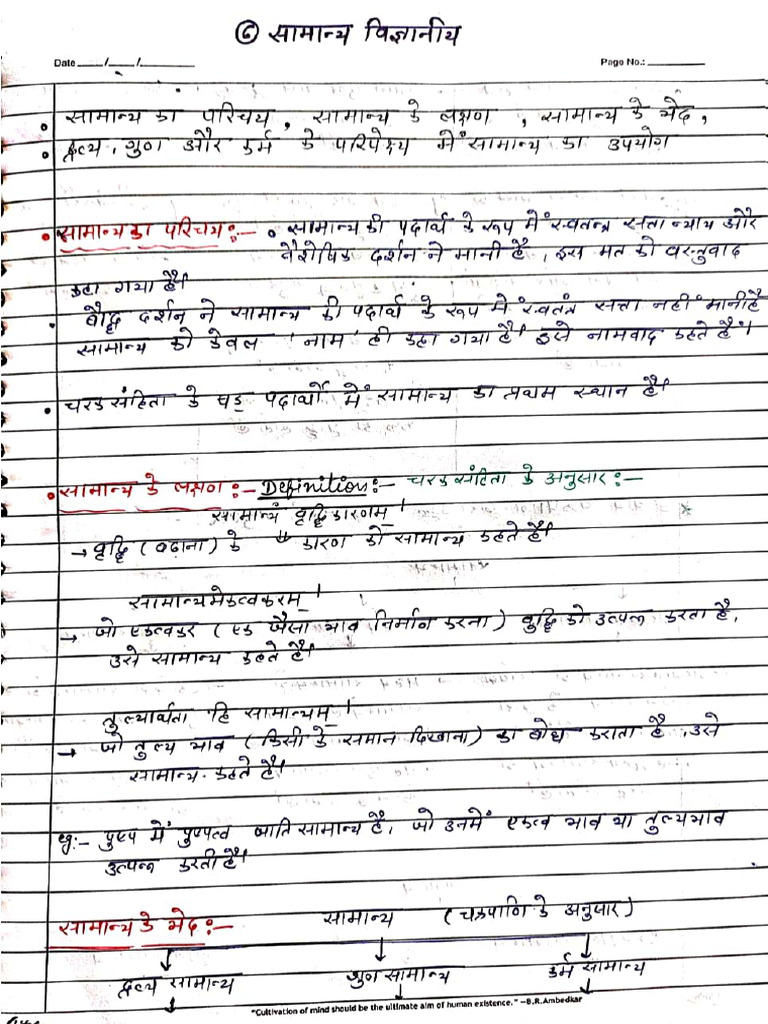 ⑥ सामान्य विज्ञानीय
Date ___/___/______ Page No.: ______
• सामान्य का परिचय, सामान्य के लक्षण, सामान्य के भेद,
• द्रव्य, गुण और कर्म के परिपेक्ष्य में सामान्य का उपयोग
• सामान्य का परिचय:- • सामान्य की पदार्थ के रूप में स्वतन्त्र सत्ता न्याय और
वैशेषिक दर्शन ने मानी है, इस मत को वस्तुवाद
कहा गया है।
• बौद्ध दर्शन ने सामान्य की पदार्थ के रूप में स्वतंत्र सत्ता नहीं मानी है
सामान्य को केवल 'नाम' ही कहा गया है। इसे नामवाद कहते हैं।
• चरक संहिता के षड् पदार्थों में सामान्य का प्रथम स्थान है।
• सामान्य के लक्षण:- Definition:- चरक संहिता के अनुसार:-
सामान्यं वृद्धिकारणम् ।
→ वृद्धि (बढ़ाना) के " कारण को सामान्य कहते है।
सामान्यमेकत्वकरम् ।
→ जो एकत्वकर (एक जैसा भाव निर्माण करना) वृद्धि को उत्पन्न करता है,
उसे सामान्य कहते है।
तुल्यार्थता हि सामान्यम् ।
→ जो तुल्य भाव (किसी के समान दिखाना) का बोध कराता है, उसे
सामान्य कहते है।
:- पुष्प में पुष्पत्व जाति सामान्य है, जो उनमें एकत्व भाव या तुल्यभाव
उत्पन्न करती है।
सामान्य के भेद:- सामान्य (चक्रपाणि के अनुसार)
द्रव्य सामान्य गुण सामान्य कर्म सामान्य
"Cultivation of mind should be the ultimate aim of human existence." –B.R.Ambedkar